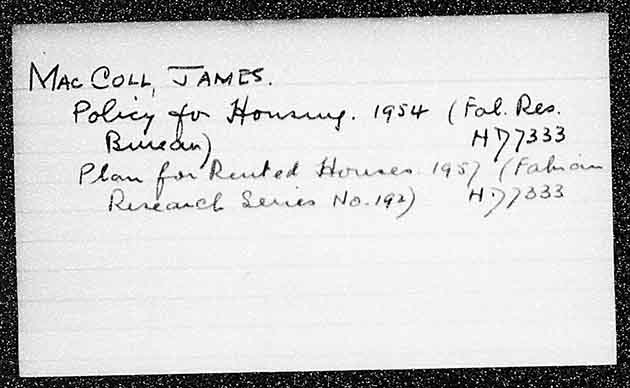 MAC COLL, JAMES.
Policy for Housing. 1954 (Fab. Res.
Bureau) HD7333
Plan for Rented Houses. 1957 (Fabian
Research Series No. 192) HD7333